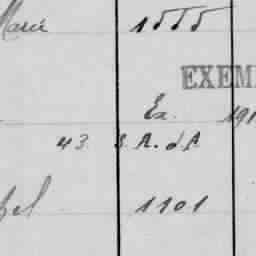 Marie 1555
EXEM
Ex. 191
43 S.R. d A
1101